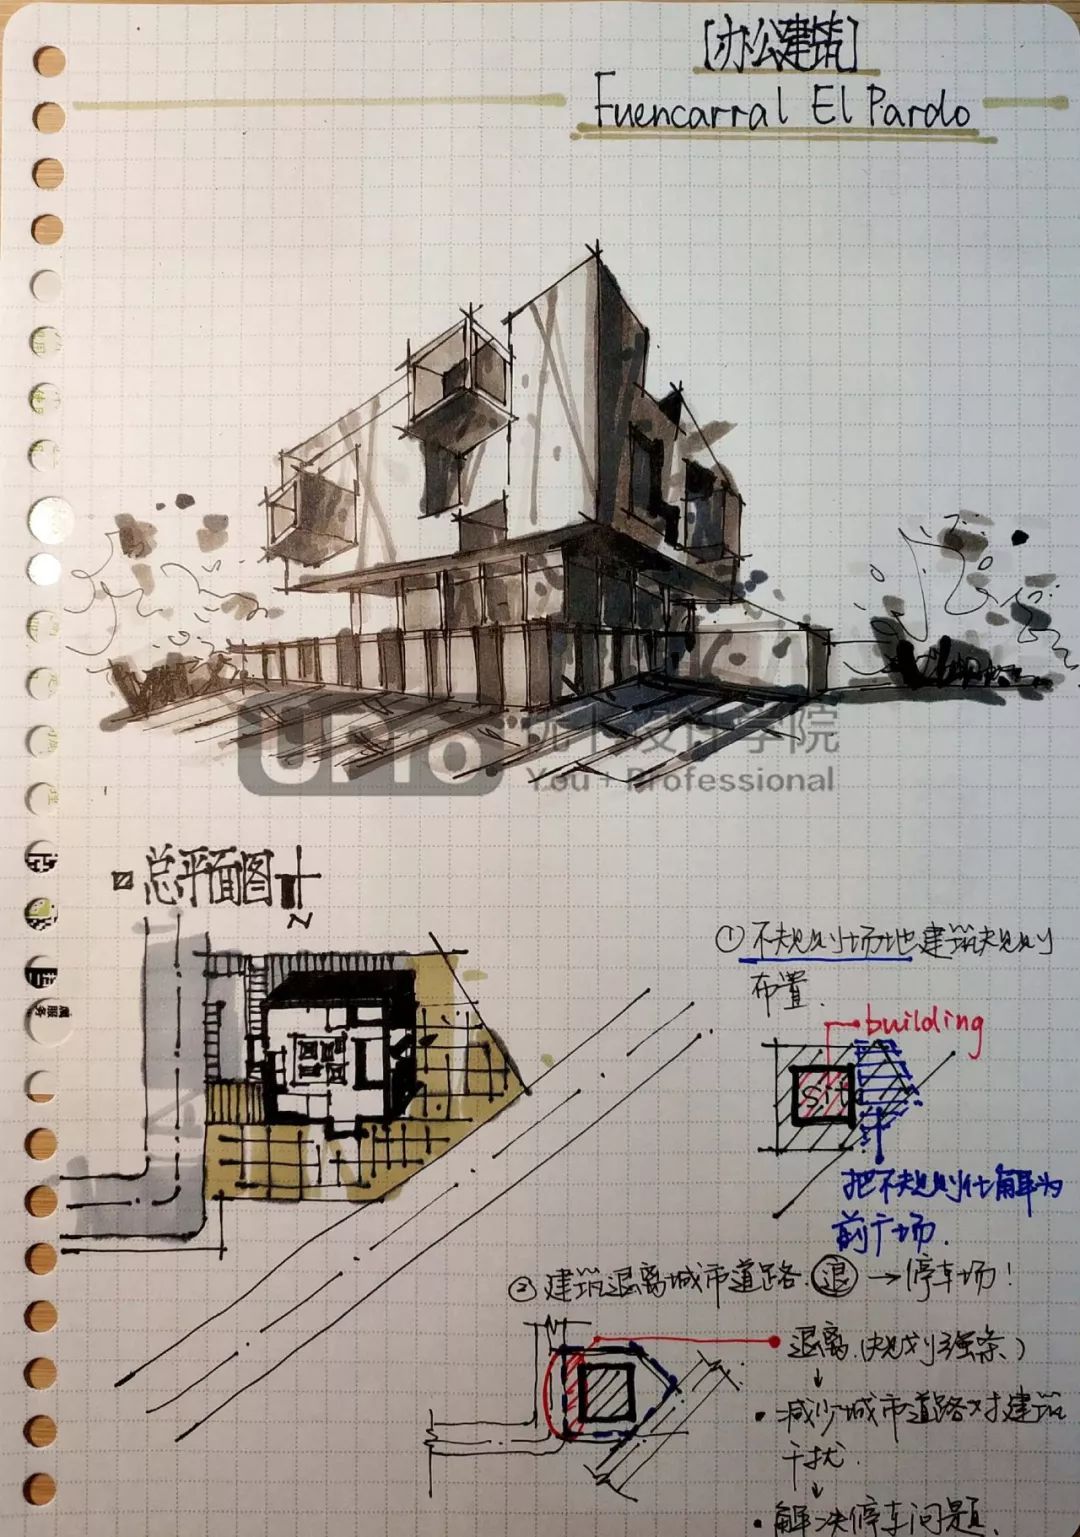 [办公建筑]
Fuencarral El Pardo
uno 优卜设计学院
You+Professional
总平面图
N
① 不规则场地建筑规则
布置.
building
Sit
把不规则化解为
前广场.
② 建筑退离城市道路. 退 → 停车场!
退离.(规划强条.)
↓
• 减少城市道路对建筑
干扰.
↓
• 解决停车问题